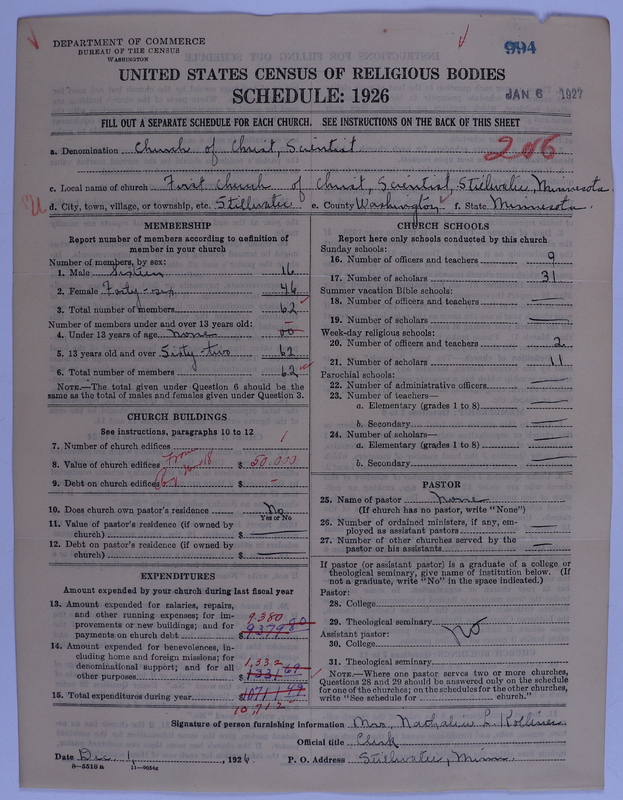 DEPARTMENT OF COMMERCE
BUREAU OF THE CENSUS
WASHINGTON
994
UNITED STATES CENSUS OF RELIGIOUS BODIES
SCHEDULE: 1926
JAN 6 1927
FILL OUT A SEPARATE SCHEDULE FOR EACH CHURCH. SEE INSTRUCTIONS ON THE BACK OF THIS SHEET
a. Denomination Church of Christ, Scientist
206
c. Local name of church First Church of Christ, Scientist, Stillwater, Minnesota
d. City, town, village, or township, etc. Stillwater e. County Washington f. State Minnesota
MEMBERSHIP
Report number of members according to definition of
member in your church
Number of members, by sex:
1. Male Sixteen 16
2. Female Forty-six 46
3. Total number of members 62
Number of members under and over 13 years old:
4. Under 13 years of age none 00
5. 13 years old and over Sixty-two 62
6. Total number of members 62
NOTE.—The total given under Question 6 should be the
same as the total of males and females given under Question 3.
CHURCH BUILDINGS
See instructions, paragraphs 10 to 12
7. Number of church edifices 1
8. Value of church edifices From $ 50.000
9. Debt on church edifices $ —
10. Does church own pastor's residence No
Yes or No
11. Value of pastor's residence (if owned by
church) $
12. Debt on pastor's residence (if owned by
church) $
EXPENDITURES
Amount expended by your church during last fiscal year
13. Amount expended for salaries, repairs,
and other running expenses; for im-
provements or new buildings; and for
payments on church debt 9.380 $ 9379 80
14. Amount expended for benevolences, in-
cluding home and foreign missions; for
denominational support; and for all
other purposes 1,332 $ 1331 69
15. Total expenditures during year $ 10711 49
10,712
CHURCH SCHOOLS
Report here only schools conducted by this church
Sunday schools:
16. Number of officers and teachers 9
17. Number of scholars 31
Summer vacation Bible schools:
18. Number of officers and teachers
19. Number of scholars
Week-day religious schools:
20. Number of officers and teachers 2
21. Number of scholars 11
Parochial schools:
22. Number of administrative officers
23. Number of teachers—
a. Elementary (grades 1 to 8)
b. Secondary
24. Number of scholars—
a. Elementary (grades 1 to 8)
b. Secondary
PASTOR
25. Name of pastor None
(If church has no pastor, write "None")
26. Number of ordained ministers, if any, em-
ployed as assistant pastors
27. Number of other churches served by the
pastor or his assistants
If pastor (or assistant pastor) is a graduate of a college or
theological seminary, give name of institution below. (If
not a graduate, write "No" in the space indicated.)
Pastor:
28. College
29. Theological seminary
Assistant pastor: No
30. College
31. Theological seminary
NOTE.—Where one pastor serves two or more churches,
Questions 28 and 29 should be answered only on the schedule
for one of the churches; on the schedules for the other churches,
write "See schedule for church."
Signature of person furnishing information Mrs. Nathalie L. Kolliner
Official title Clerk
Date Dec 1, 1926. P. O. Address Stillwater, Minn.
8—5518 a 11—9054a